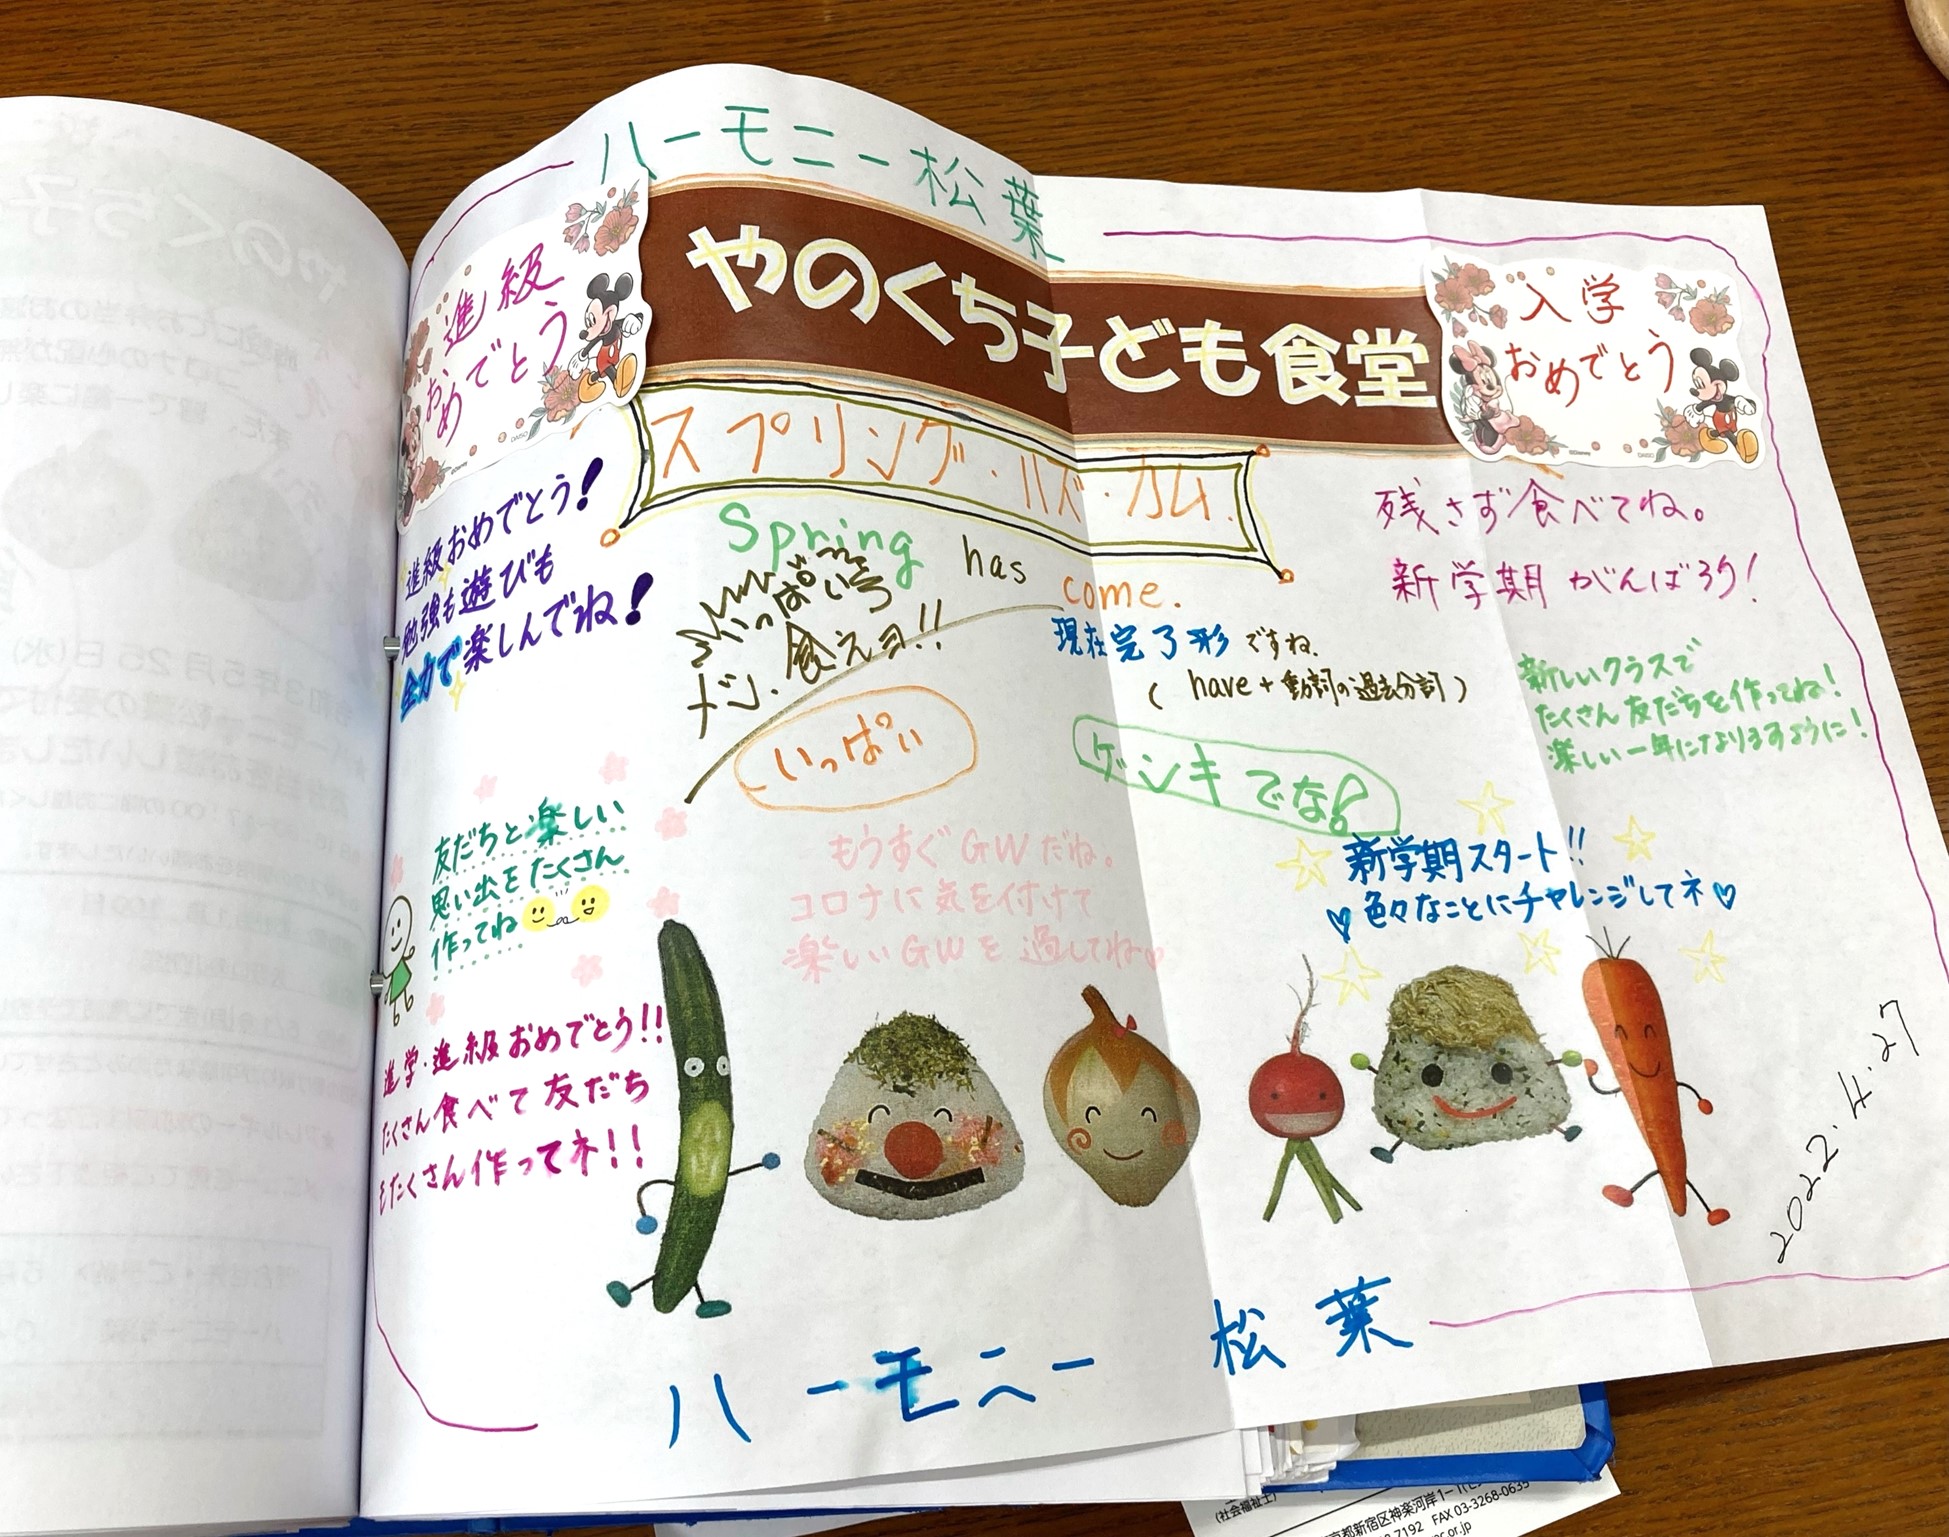 ハーモニー松葉
やのくち子ども食堂
進級
おめでとう
入学
おめでとう
スプリング・ハズ・カム.
Spring has come.
現在完了形ですね.
(have+動詞の過去分詞)
残さず食べてね。
新学期がんばろう!
進級おめでとう!
勉強も遊びも
全力で楽しんでね!
食えヨ!!
いっぱい
ゲンキでな!
新しいクラスで
たくさん友だちを作ってね!
楽しい一年になりますように!
友だちと楽しい
思い出をたくさん
作ってね
もうすぐGWだね。
コロナに気を付けて
楽しいGWを過してね♡
新学期スタート!!
♡色々なことにチャレンジしてネ♡
進学・進級おめでとう!!
たくさん食べて友だち
もたくさん作ってネ!!
2022.4.27
ハーモニー 松葉
(社会福祉士)
京都新宿区神楽河岸1-1
7192 FAX 03-3268-0635
or.jp